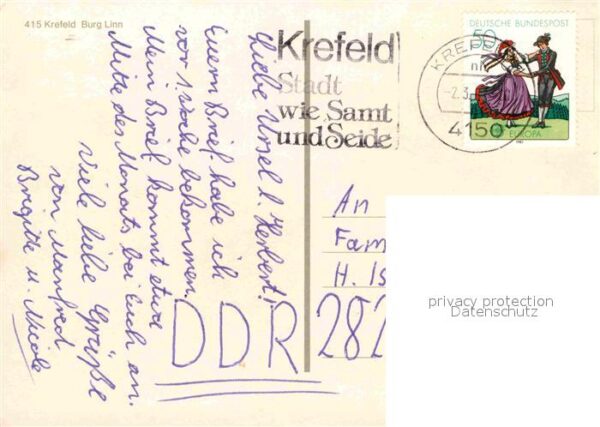 415 Krefeld Burg Linn
Liebe Ursel u. Herbert!
Euern Brief habe ich
vor 1. Woche bekommen.
Mein Brief kommt etwa
Mitte des Monats bei Euch an.
Viele liebe Grüße
von Manfred
Brigitte u. Nicole
Krefeld
Stadt
wie Samt
und Seide
KREFELD
-2.3
4150
DEUTSCHE BUNDESPOST
50
EUROPA
An
Fam
H. Is
DDR 282
privacy protection
Datenschutz